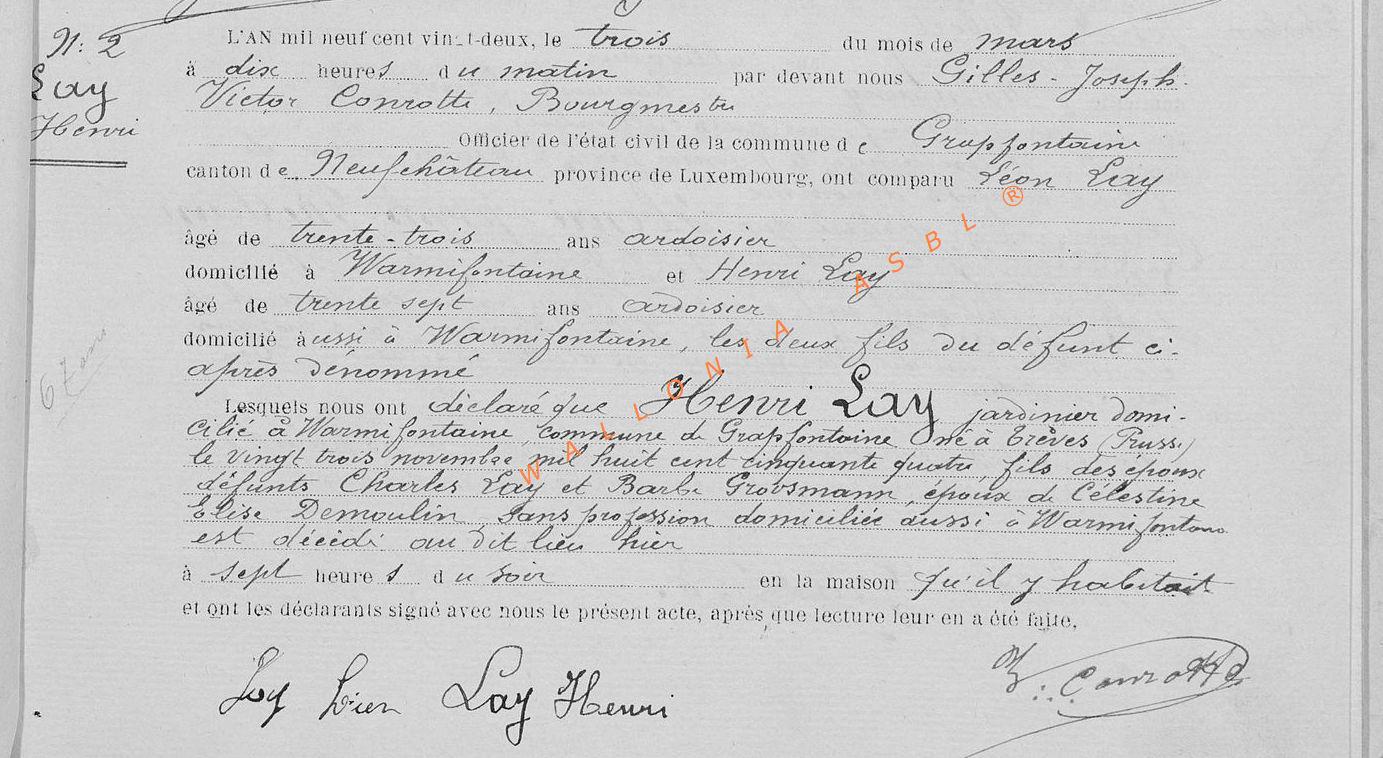 N: 2
Lay
Henri
L'AN mil neuf cent vingt-deux, le trois du mois de mars
à dix heures du matin par devant nous Gilles-Joseph-
Victor Conrotte, Bourgmestre
Officier de l'état civil de la commune de Grapfontaine
canton de Neufchâteau province de Luxembourg, ont comparu Léon Lay
âgé de trente-trois ans ardoisier
domicilié à Warmifontaine et Henri Lay
âgé de trente sept ans ardoisier
domicilié à aussi à Warmifontaine, les deux fils du défunt ci-
après dénommé
Lesquels nous ont déclaré que Henri Lay jardinier domi-
cilié à Warmifontaine, commune de Grapfontaine né à Trèves (Prusse)
le vingt trois novembre mil huit cent cinquante quatre, fils des époux
défunts Charles Lay et Barbe Groosmann, époux de Célestine
Elise Demoulin, sans profession domiciliée aussi à Warmifontaine
est décédé au dit lieu hier
à sept heures du soir en la maison qu'il y habitait
et ont les déclarants signé avec nous le présent acte, après que lecture leur en a été faite.
67 ans
Lay Lay Henri
Conrotte
WALLONIA ASBL ®